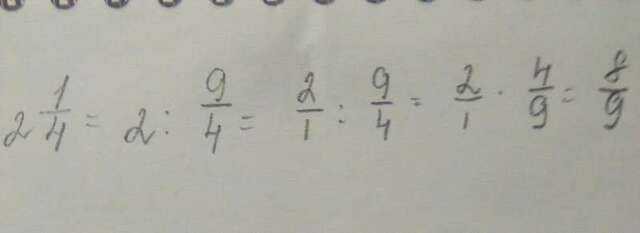 2 1/4 = 2 : 9/4 = 2/1 : 9/4 = 2/1 · 4/9 = 8/9